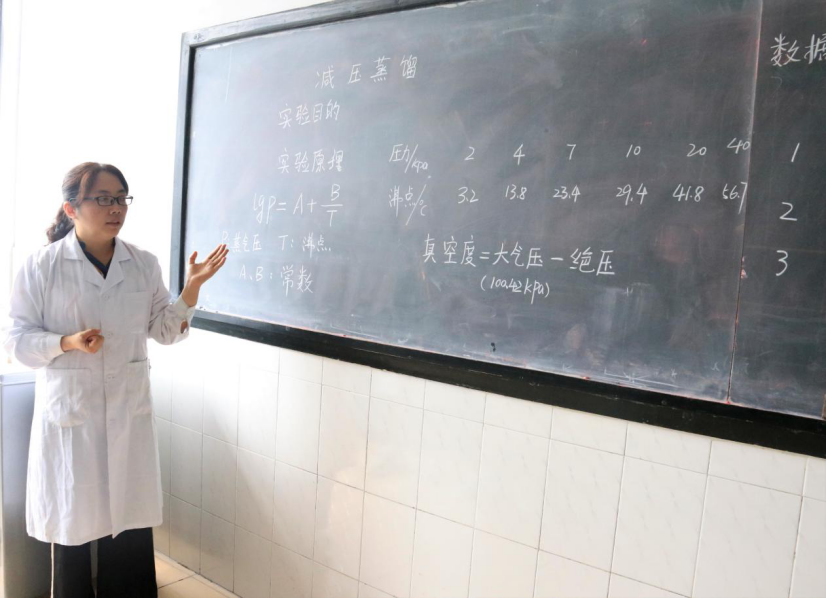 减压蒸馏
实验目的
实验原理
lgp=A+B/T
蒸气压 T:沸点.
A、B:常数
压力/kpa 2 4 7 10 20 40
沸点/℃ 3.2 13.8 23.4 29.4 41.8 56.7
真空度=大气压-绝压
(100.42kpa)
数据
1
2
3